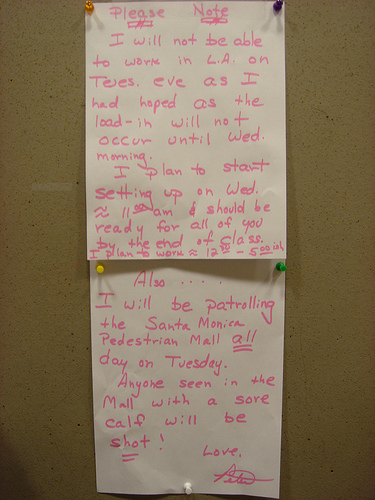 Please Note
I will not be able
to work in L.A. on
Tues. eve as I
had hoped as the
load-in will not
occur until Wed.
morning.
I plan to start
setting up on Wed.
≈ 11:00 am & should be
ready for all of you
by the end of class.
I plan to work ≈ 12:00 - 5:00 ish
Also ....
I will be patrolling
the Santa Monica
Pedestrian Mall all
day on Tuesday.
Anyone seen in the
Mall with a sore
calf will be
shot!
Love,
Peter